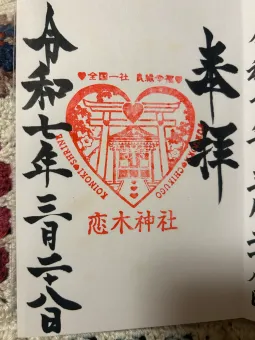 奉拝
♥全国一社 良縁幸福♥
KOINOKI SHRINE
CHIKUGO
恋木神社
令和七年三月二十八日